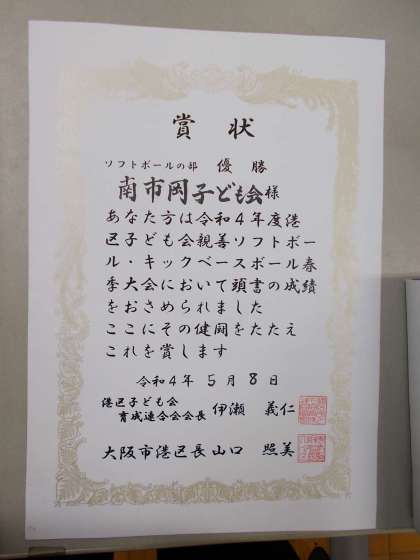 賞状
ソフトボールの部 優勝
南市岡子ども会様
あなた方は令和4年度港
区子ども会親善ソフトボー
ル・キックベースボール春
季大会において頭書の成績
をおさめられました
ここにその健闘をたたえ
これを賞します
令和4年5月8日
港区子ども会
育成連合会会長 伊瀬 義仁
大阪市港区長 山口 照美